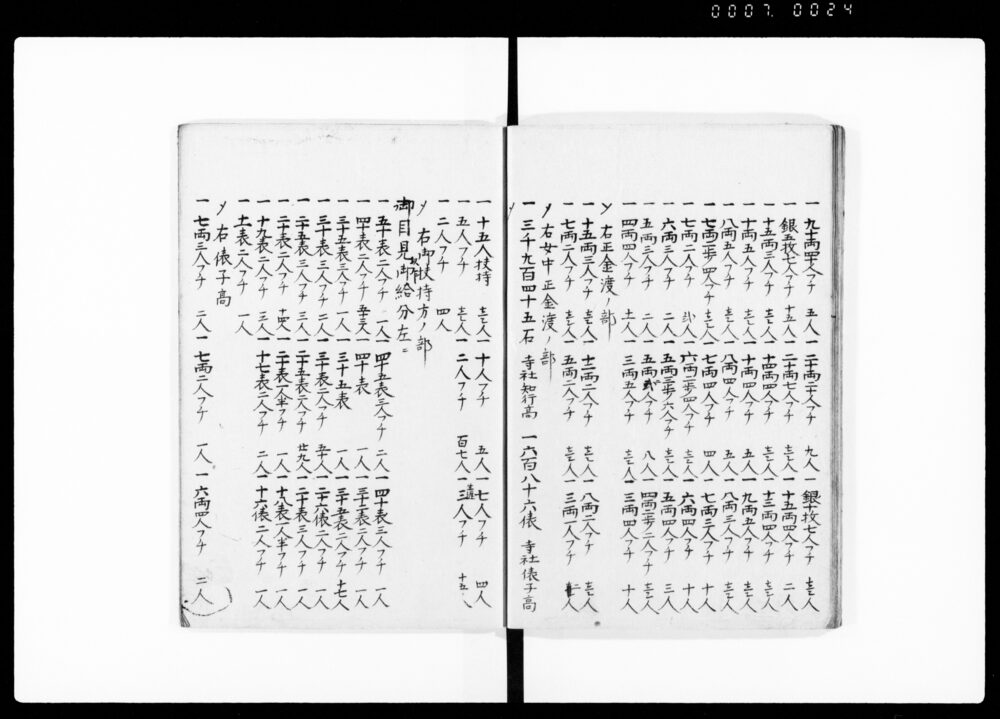 0007. 0024
一 九両四人フチ 五人 一 二十両二十人フチ 九人 一 銀十枚七人フチ 壱人
一 銀五枚七人フチ 十五人 一 二十両七人フチ 壱人 一 十五両四人フチ 二人
一 十五両三人フチ 壱人 一 十両四人フチ 壱人 一 十三両四人フチ 壱人
一 十両五人フチ 壱人 一 十両四人フチ 五人 一 九両五人フチ 壱人
一 八両五人フチ 壱人 一 八両四人フチ 五人 一 八両三人フチ 壱人
一 七両二歩四人フチ 壱人 一 七両四人フチ 四人 一 七両三人フチ 十人
一 七両二人フチ 弐人 一 六両二歩四人フチ 壱人 一 六両四人フチ 十人
一 六両三人フチ 二人 一 五両三歩六人フチ 壱人 一 五両四人フチ 三人
一 五両三人フチ 二人 一 五両弐人フチ 八人 一 四両二歩二人フチ 壱人
一 四両四人フチ 十一人 一 三両五人フチ 壱人 一 三両四人フチ 十人
〆 右正金渡ノ部
一 十五両三人フチ 壱人 一 十二両二人フチ 壱人 一 八両二人フチ 壱人
一 七両二人フチ 壱人 一 五両二人フチ 壱人 一 三両一人フチ 二人
〆 右女中正金渡ノ部
一 三千九百四十五石 寺社知行高 一 六百八十六俵 寺社俵子高
〆
一 十五人扶持 壱人 一 十人フチ 五人 一 七人フチ 四人
一 五人フチ 壱人 一 二人フチ 百七人 一 三人フチ 十五人
一 二人フチ 四人
〆 右御扶持方ノ部
御目見以下御給分左ニ
一 五十表二人フチ 一人 一 四十五表三人フチ 二人 一 四十表三人フチ 一人
一 四十表二人フチ 五十三人 一 四十表 一人 一 三十七表二人フチ 一人
一 三十五表三人フチ 一人 一 三十五表 一人 一 三十五表二人フチ 十七人
一 三十表三人フチ 二人 一 三十表二人フチ 五十人 一 二十六俵二人フチ 一人
一 二十五表三人フチ 一人 一 二十五表二人フチ 廿九人 一 二十表三人フチ 一人
一 二十表二人フチ 十四人 一 二十表一人半フチ 一人 一 十八表一人半フチ 一人
一 十九表二人フチ 三人 一 十七表二人フチ 二人 一 十六俵二人フチ 一人
一 十一表二人フチ 一人
〆 右俵子高
一 七両三人フチ 二人 一 七両二人フチ 一人 一 六両四人フチ 二人